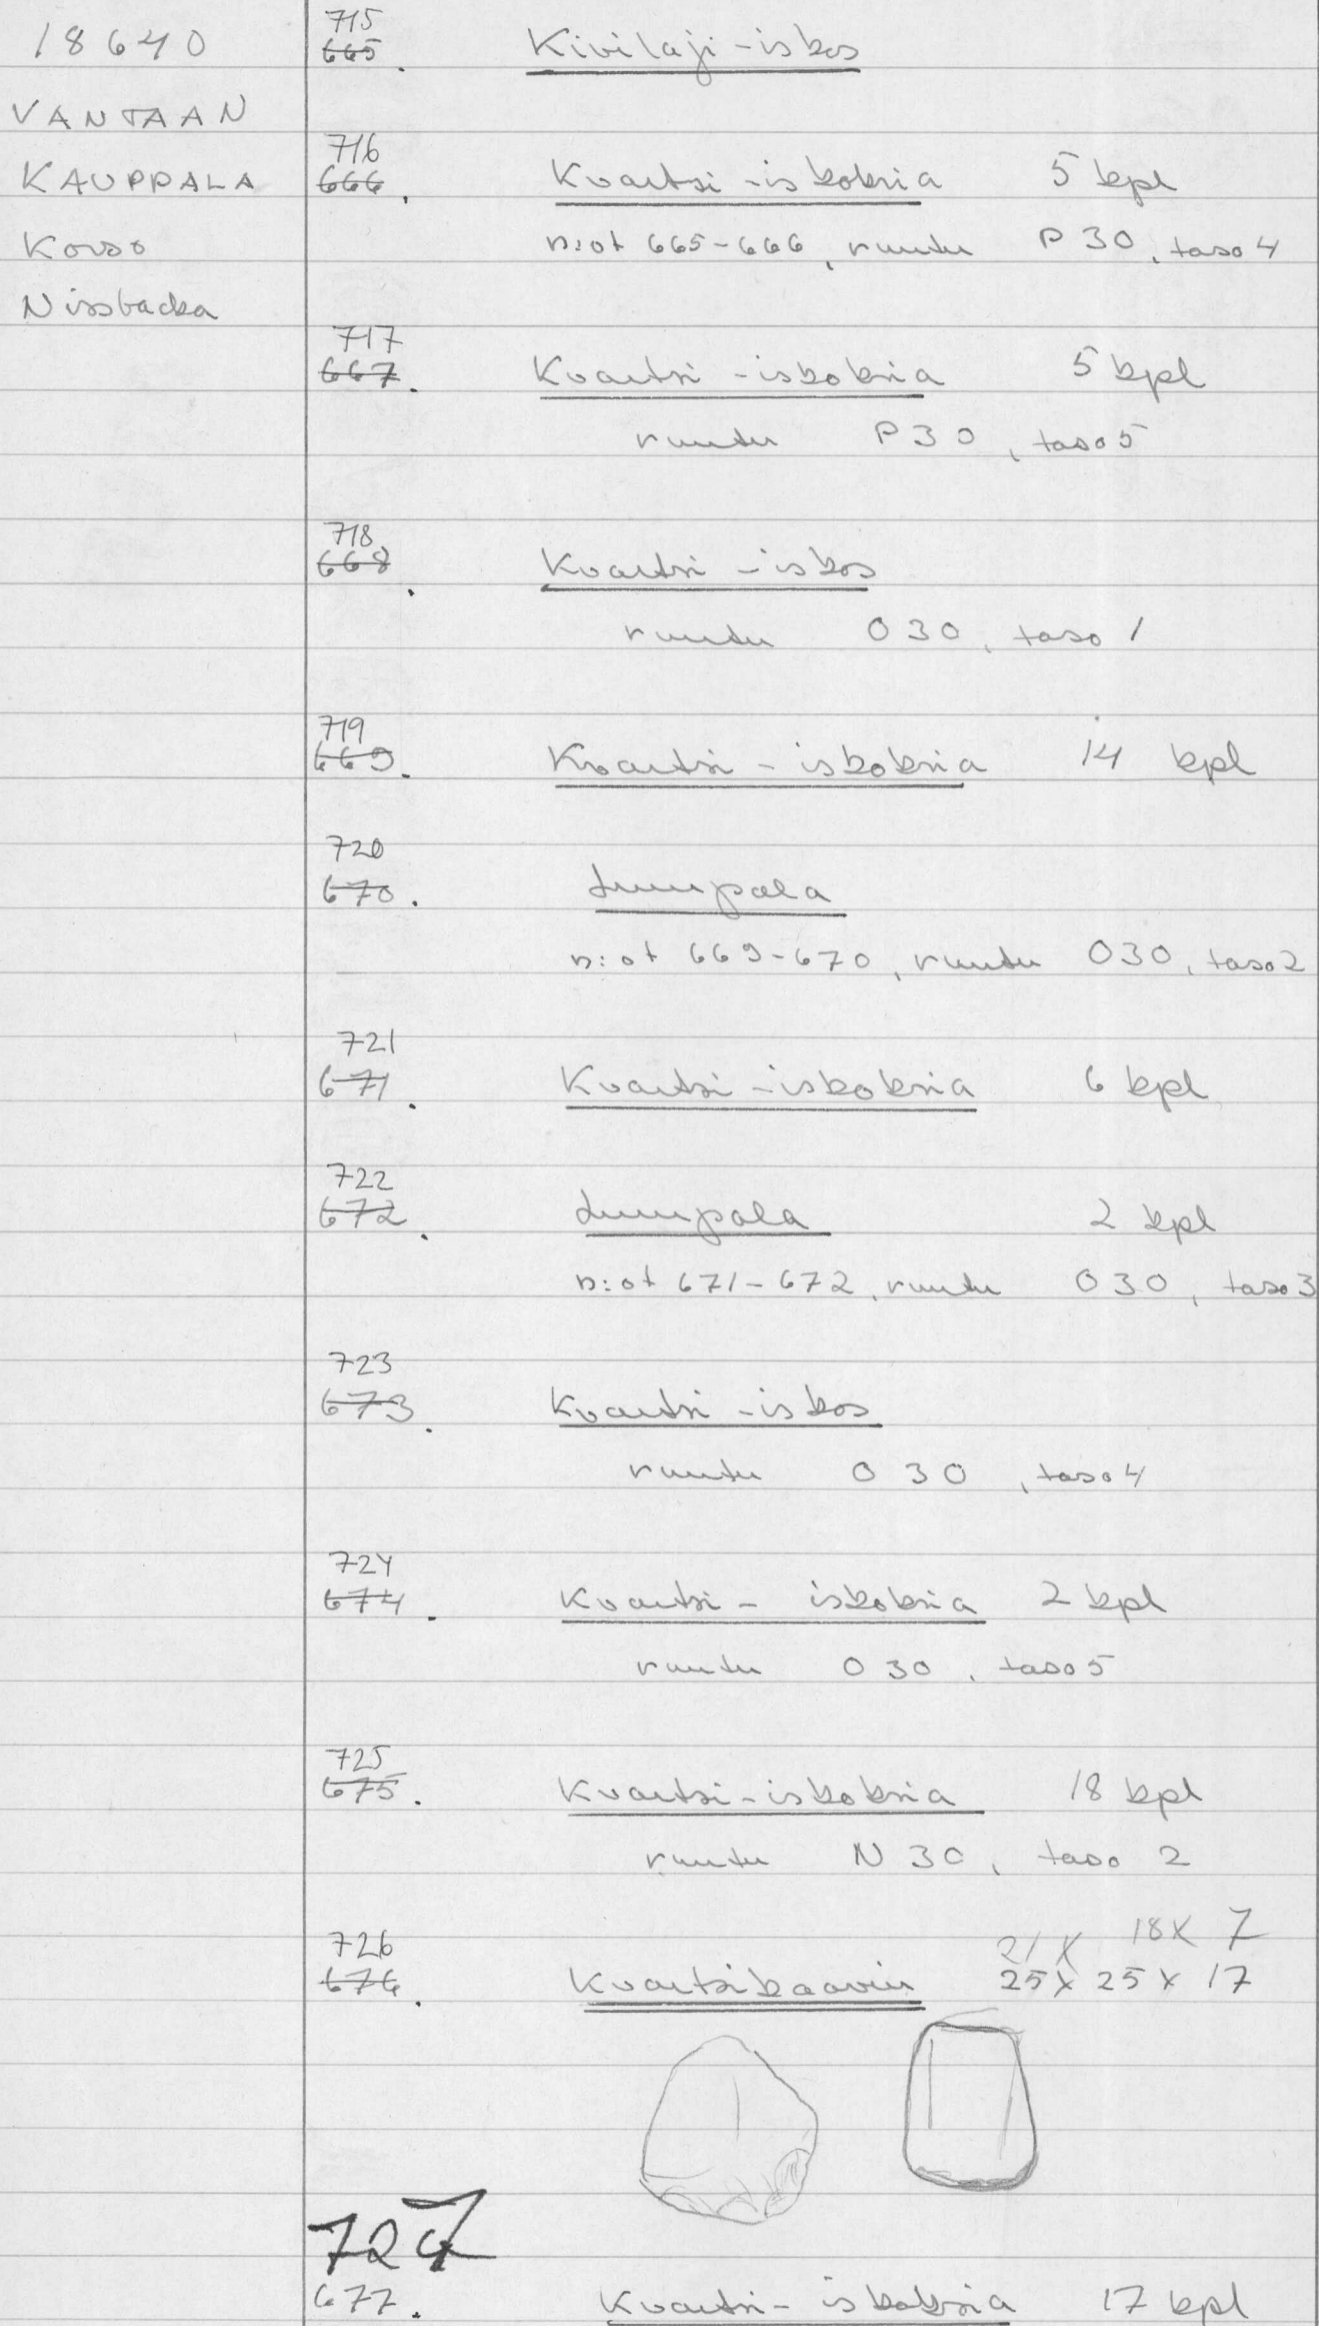 18640
VANTAAN
KAUPPALA
Korso
Nissbacka
715
665. Kivilaji-iskos
716
666. Kvartsi-iskoksia 5 kpl
n:ot 665-666, ruutu P30, taso 4
717
667. Kvartsi-iskoksia 5 kpl
ruutu P30, taso 5
718
668. Kvartsi-iskos
ruutu O30, taso 1
719
669. Kvartsi-iskoksia 14 kpl
720
670. Luupala
n:ot 669-670, ruutu O30, taso 2
721
671. Kvartsi-iskoksia 6 kpl
722
672. Luupala 2 kpl
n:ot 671-672, ruutu O30, taso 3
723
673. Kvartsi-iskos
ruutu O30, taso 4
724
674. Kvartsi-iskoksia 2 kpl
ruutu O30, taso 5
725
675. Kvartsi-iskoksia 18 kpl
ruutu N30, taso 2
726 21 x 18 x 7
676. Kvartsikaavin 25 x 25 x 17
727
677. Kvartsi-iskoksia 17 kpl